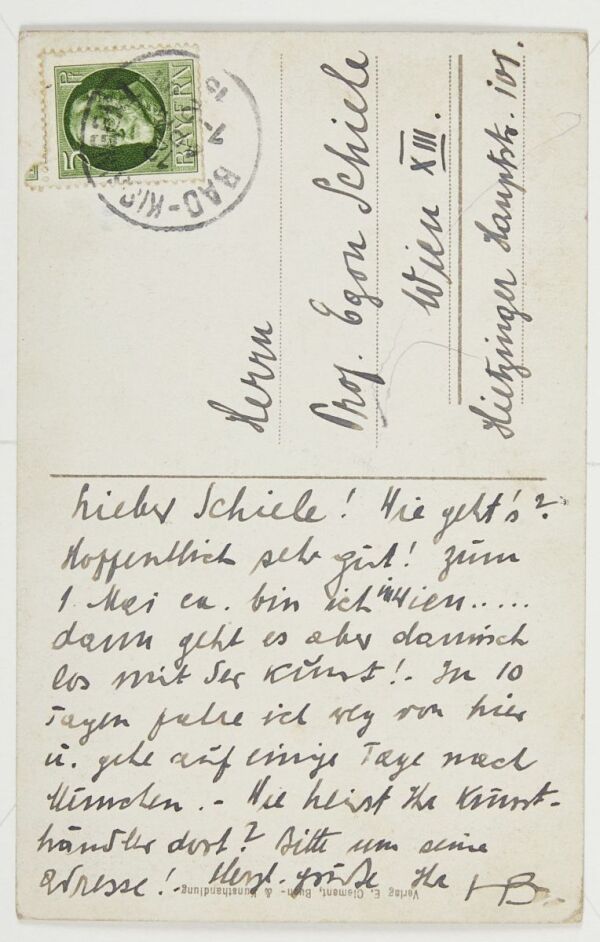 5 Pf
BAYERN
BAD-KIS
Herrn
Prof. Egon Schiele
Wien XIII.
Hietzinger Hauptstr. 101.
Lieber Schiele! Wie geht's?
Hoffentlich sehr gut! Zum
1 Mai ca. bin ich in Wien.....
dann geht es aber damisch
los mit der Kunst!. In 10
Tagen fahre ich weg von hier
u. gehe auf einige Tage nach
München. - Wie heisst Ihr Kunst-
händler dort? Bitte um seine
Adresse!. Herzl. Grüße Ihr HB.
Verlag E. Clement, Buch- & Kunsthandlung